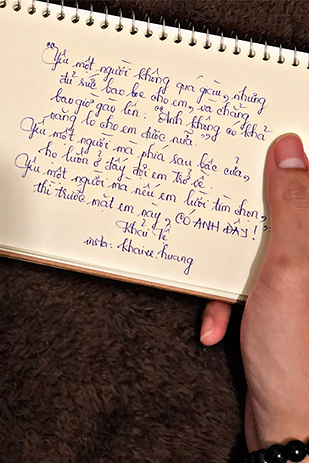 "Yêu một người không quá giàu, nhưng
đủ sức bao bọc cho em, và chẳng
bao giờ gào lên: "Anh không có khả
năng lo cho em được nữa."
Yêu một người mà phía sau bậc cửa,
họ luôn ở đấy đợi em trở về.
Yêu một người mà nếu em lười tìm chọn,
thì trước mặt em này, CÓ ANH ĐÂY!"
Khải Vệ
insta: khaive.hwang